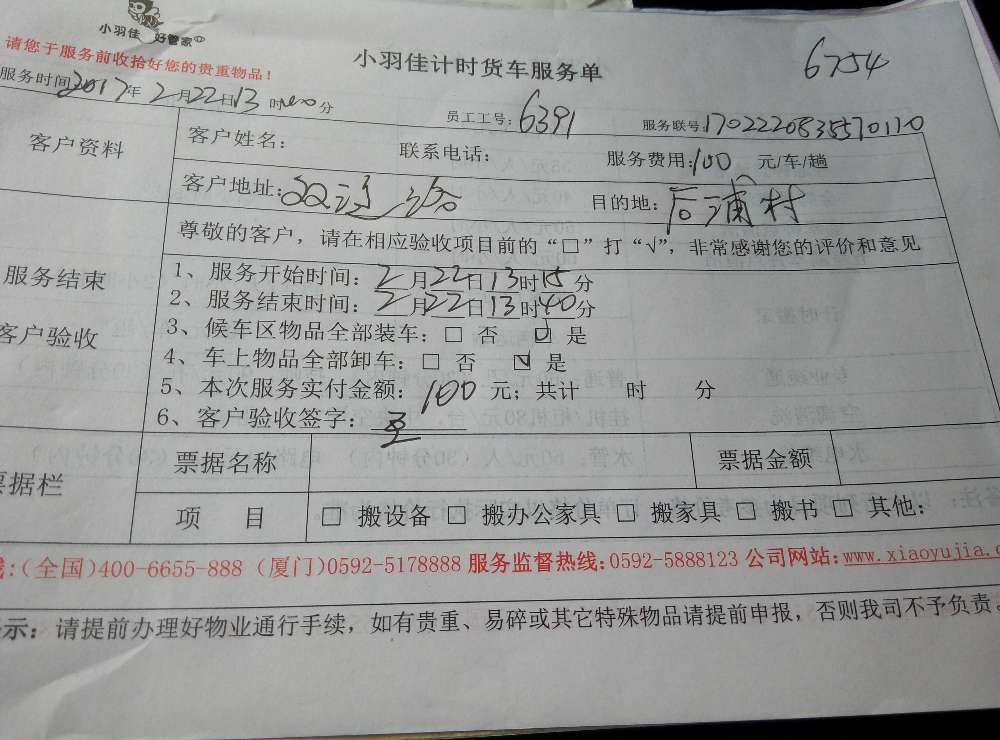 小羽佳 好管家
请您于服务前收拾好您的贵重物品！
小羽佳计时货车服务单
6754
服务时间2017年2月22日13时00分
员工工号：6391
服务联号：1702220835570110
客户资料
客户姓名：
联系电话：
服务费用：100元/车/趟
客户地址：
目的地：后浦村
尊敬的客户，请在相应验收项目前的“□”打“√”，非常感谢您的评价和意见
服务结束
客户验收
1、服务开始时间：2月22日13时15分
2、服务结束时间：2月22日13时40分
3、候车区物品全部装车：□ 否 ☑ 是
4、车上物品全部卸车：□ 否 ☑ 是
5、本次服务实付金额：100元；共计 时 分
6、客户验收签字：
票据栏
票据名称
票据金额
项 目
□ 搬设备 □ 搬办公家具 □ 搬家具 □ 搬书 □ 其他：
：(全国)400-6655-888 (厦门)0592-5178888 服务监督热线：0592-5888123 公司网站：www.xiaoyujia.c
示：请提前办理好物业通行手续，如有贵重、易碎或其它特殊物品请提前申报，否则我司不予负责。